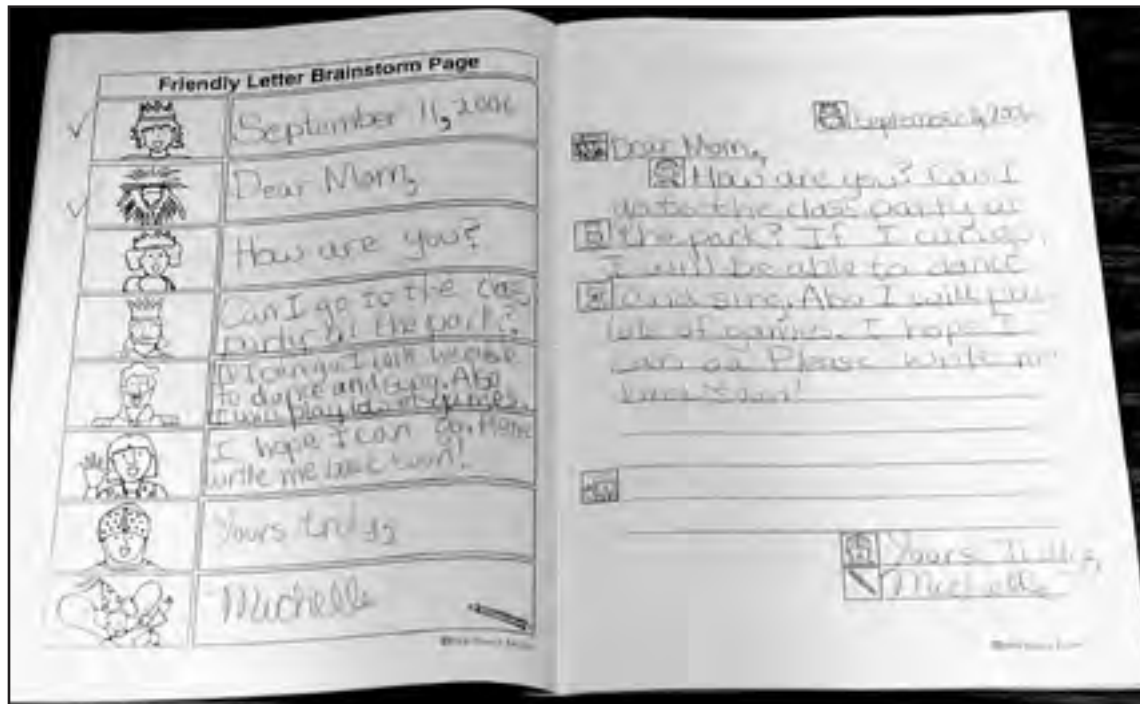 Friendly Letter Brainstorm Page
September 11, 2006
Dear Mom,
How are you?
Can I go to the clas
party at the park?
If I can go I will be able
to dance and sing. Also
I will play lots of games.
I hope I can go. Please
write me back soon!
Yours truly
Michelle
September 11, 2006
Dear Mom,
How are you? Can I
go to the class party at
the park? If I can go,
I will be able to dance
and sing. Also I will play
lots of games. I hope I
can go. Please write me
back soon!
Yours
Michelle